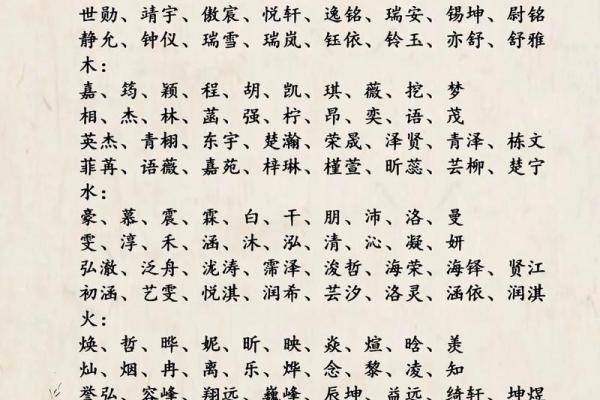 世勋、靖宇、傲宸、悦轩、逸铭、瑞安、锡坤、尉铭
静允、钟仪、瑞雪、瑞岚、钰依、铃玉、亦舒、舒雅
木：
嘉、筠、颖、程、胡、凯、琪、薇、挖、梦
相、杰、林、菡、强、柠、昂、奕、语、茂
英杰、青栩、东宇、楚瀚、荣晟、泽贤、青泽、栋文
菲苒、语薇、嘉苑、梓琳、槿萱、昕蕊、芸柳、楚宁
水：
豪、慕、震、霖、白、干、朋、沛、洛、曼
雯、淳、禾、涵、沐、泓、清、沁、凝、妍
弘澈、泛舟、泷涛、霈泽、浚哲、海荣、海铎、贤江
初涵、艺雯、悦淇、润希、芸汐、洛灵、涵依、润淇
火：
焕、哲、晔、妮、昕、映、焱、煊、晗、羡
灿、烟、冉、离、乐、烨、念、黎、凌、知
誉弘、容峰、翔远、巍峰、辰坤、益远、绮轩、坤煜